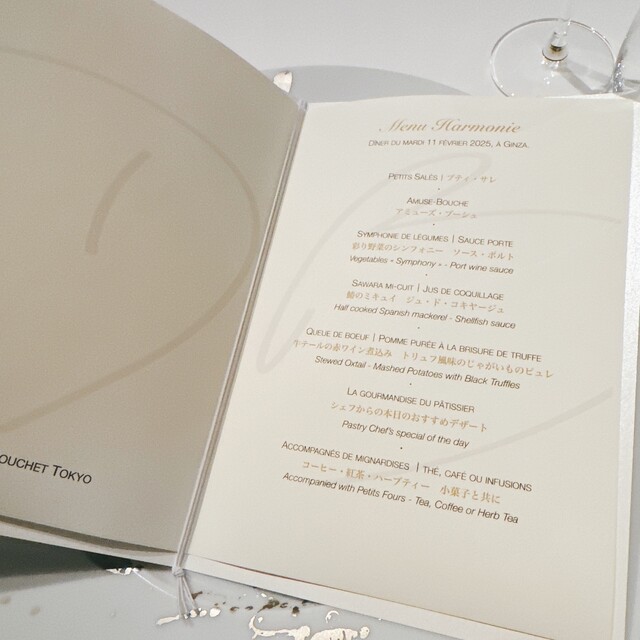 Menu Harmonie
DÎNER DU MARDI 11 FÉVRIER 2025, À GINZA.
PETITS SALÉS | プティ・サレ
AMUSE-BOUCHE
アミューズ・ブーシュ
SYMPHONIE DE LÉGUMES | SAUCE PORTE
彩り野菜のシンフォニー ソース・ポルト
Vegetables « Symphony » - Port wine sauce
SAWARA MI-CUIT | JUS DE COQUILLAGE
鰆のミキュイ ジュ・ド・コキヤージュ
Half cooked Spanish mackerel - Shellfish sauce
QUEUE DE BOEUF | POMME PURÉE À LA BRISURE DE TRUFFE
牛テールの赤ワイン煮込み トリュフ風味のじゃがいものピュレ
Stewed Oxtail - Mashed Potatoes with Black Truffles
LA GOURMANDISE DU PÂTISSIER
シェフからの本日のおすすめデザート
Pastry Chef's special of the day
ACCOMPAGNÉS DE MIGNARDISES | THÉ, CAFÉ OU INFUSIONS
コーヒー・紅茶・ハーブティー 小菓子と共に
Accompanied with Petits Fours - Tea, Coffee or Herb Tea
OUCHET TOKYO